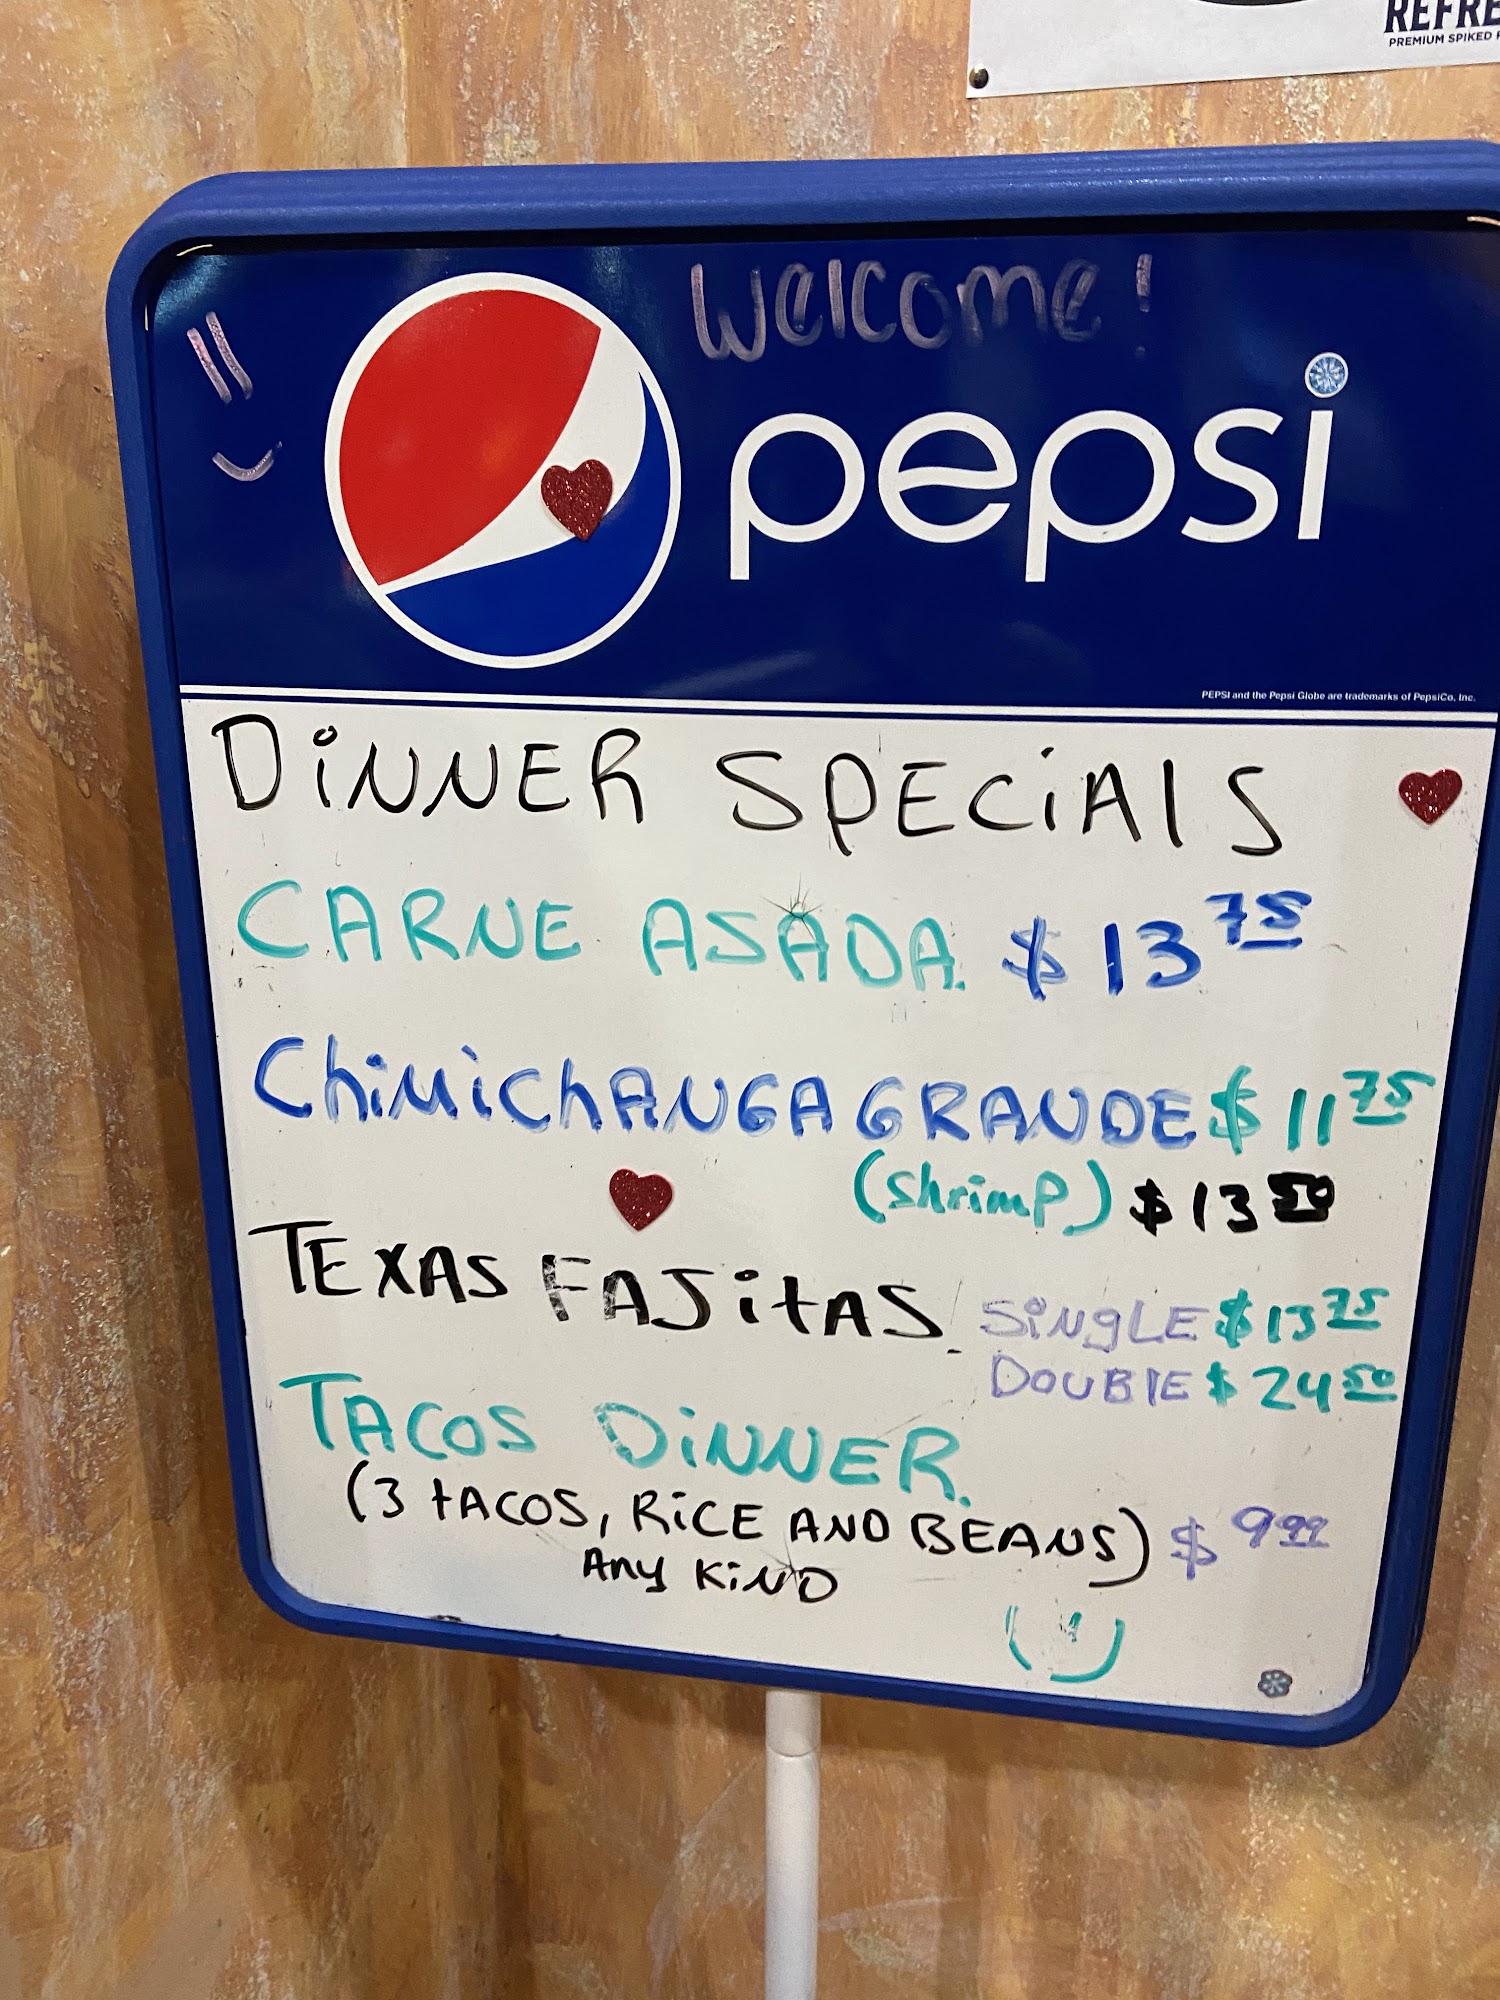 REFRE
PREMIUM SPIKED
Welcome!
pepsi
PEPSI and the Pepsi Globe are trademarks of PepsiCo, Inc.
DiNNER SPECiAlS
CARNE ASADA. $13 75
ChiMichANGA GRANDE $11 75
(shrimp) $13 50
TEXAS FAJitAS. SiNgLE $13 75
DOUBlE $24 50
TACOS DiNNER.
(3 tACOS, RiCE AND BEANS) $9 99
Any KiND